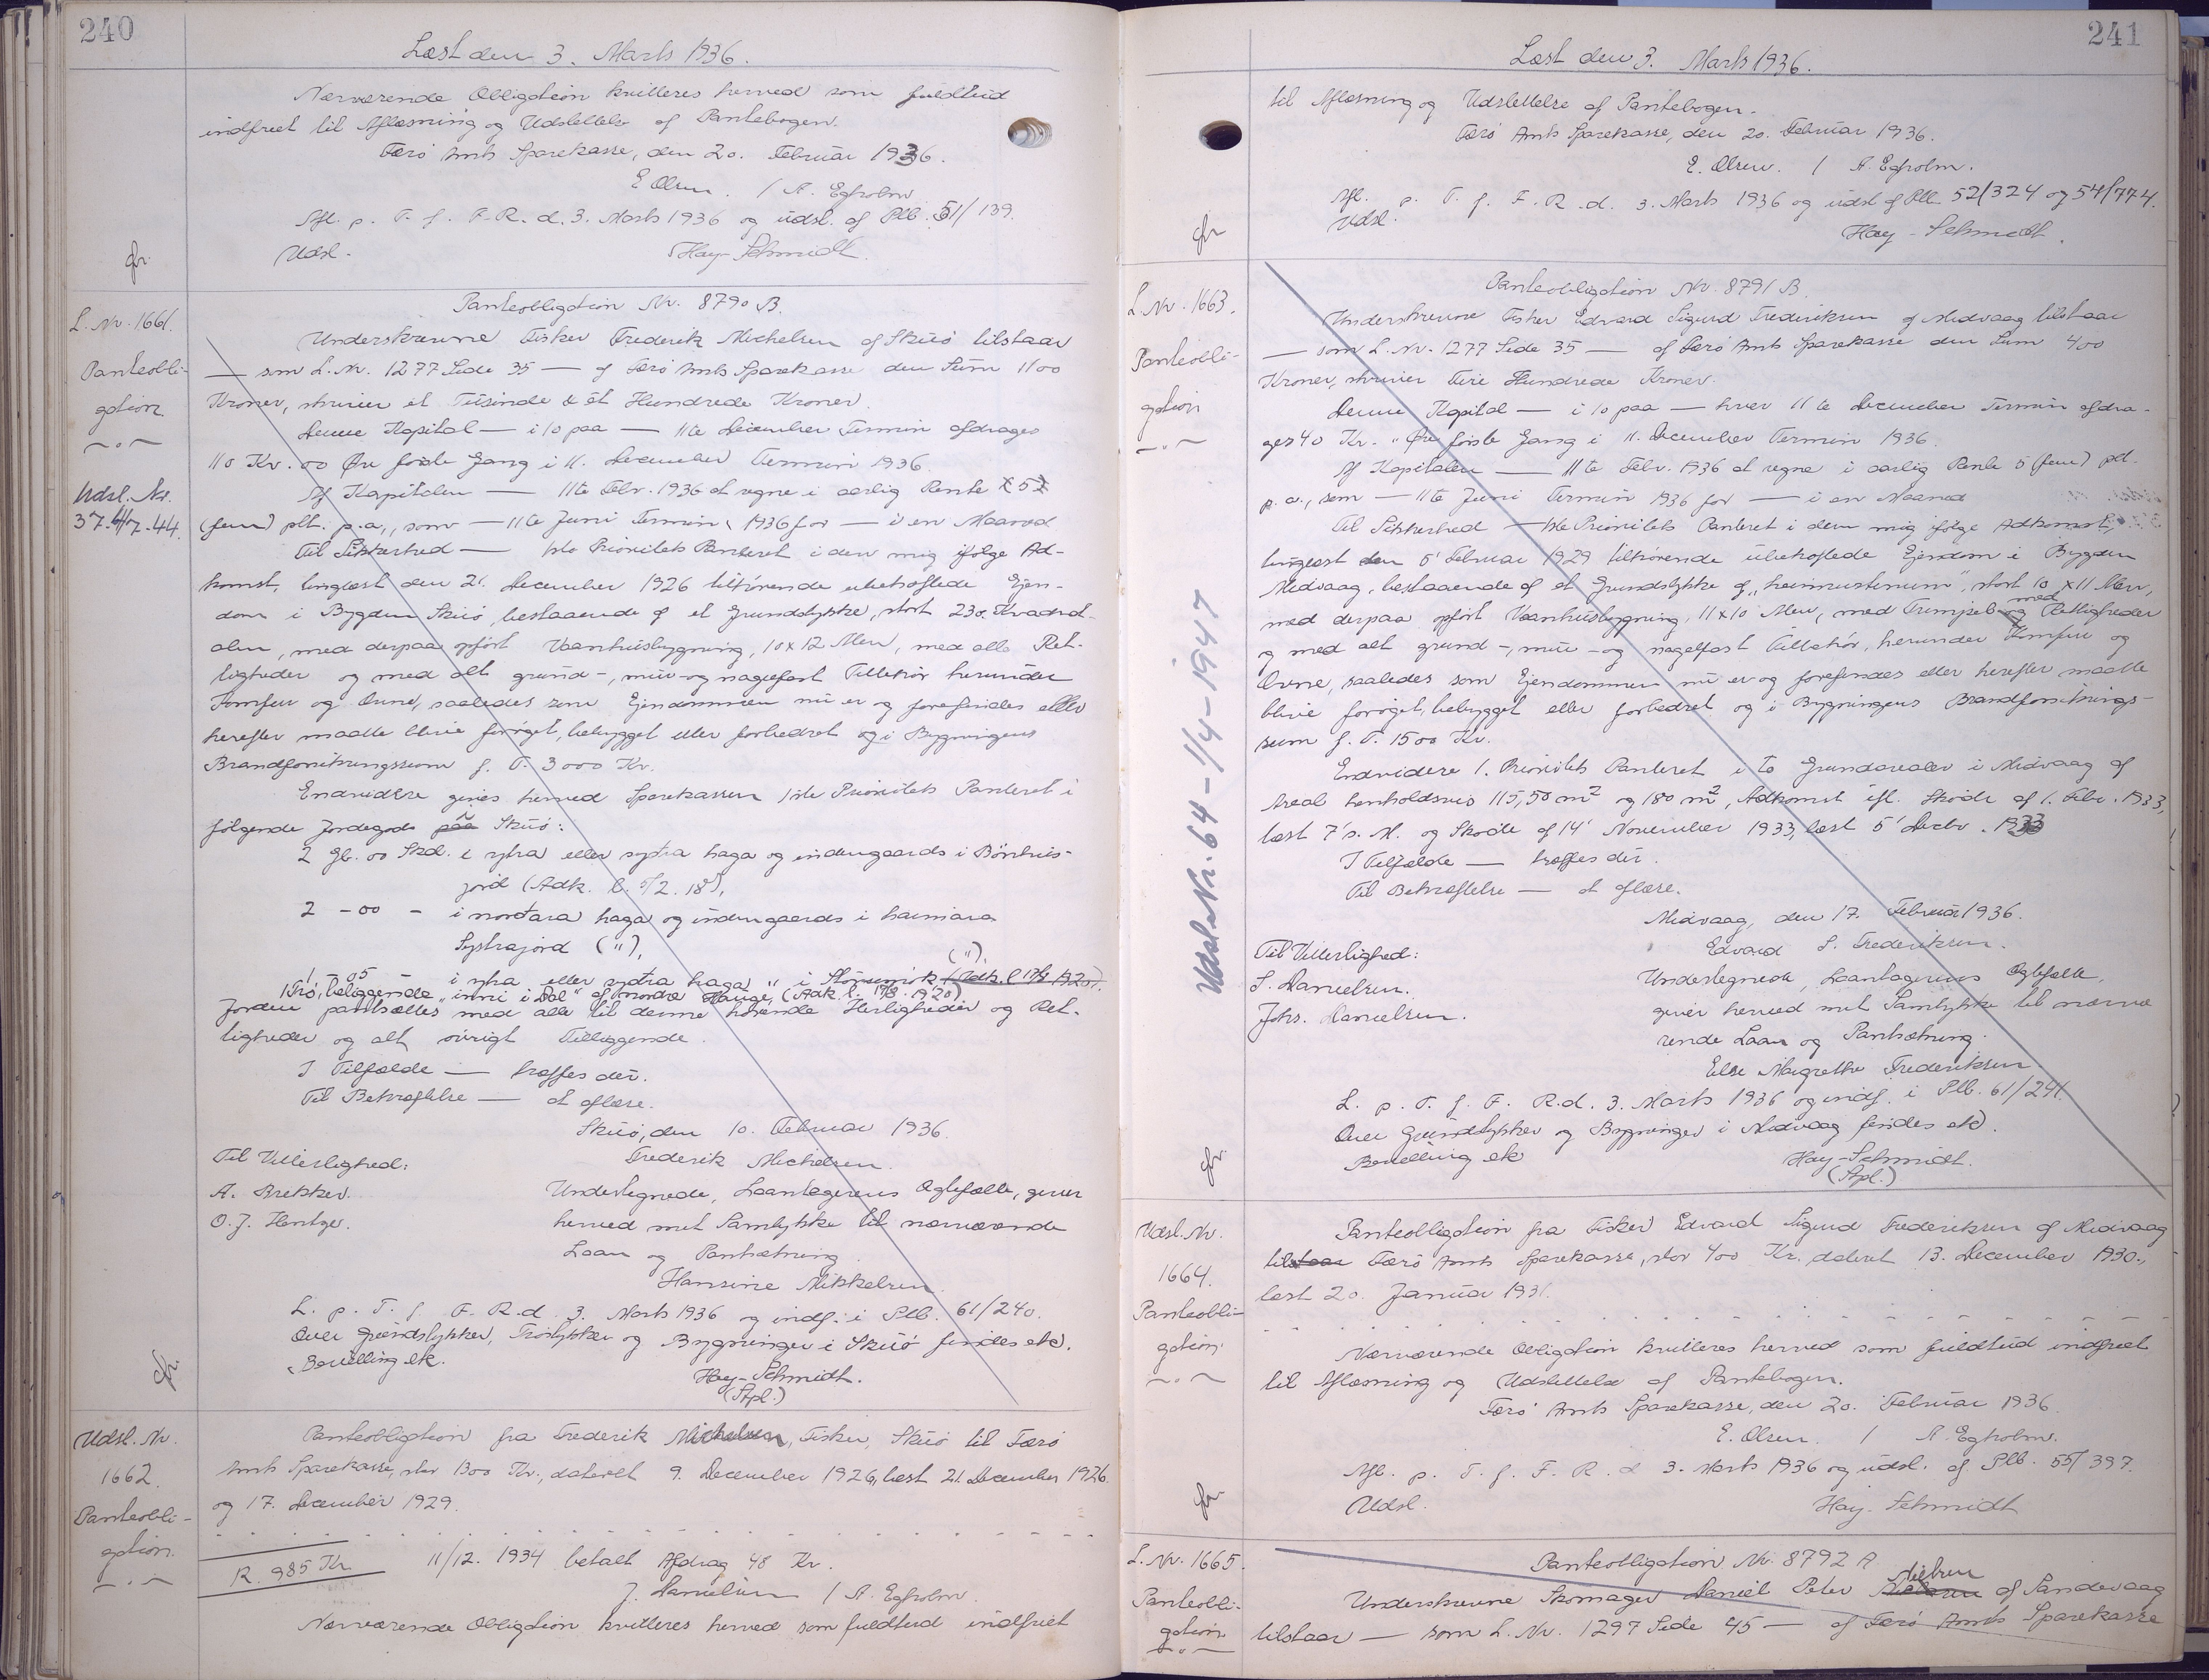 240
Læst den 3. Marts 1936.
Nærværende Obligation kvitteres herved som fuldtud
indfriet til Aflæsning og Udslettelse af Pantebogen.
Færø Amts Sparekasse, den 20. Februar 1936.
E. Olsen. / A. Egholm.
Afl. p. T. f. F. R. d. 3. Marts 1936 og udsl. af Ptb. 51/139.
Udsl.
Hay-Schmidt.
L. Nr. 1661.
Panteobli-
gation
Udsl. Nr.
37. 4/7-44.
Panteobligation Nr. 8790 B.
Underskrevne Fisker Frederik Michelsen af Skuø tilstaar
— som L. Nr. 1277 Side 35 — af Færø Amts Sparekasse den Sum 1100
Kroner, skriver et Tusinde & ét Hundrede Kroner.
Denne Kapital — i 10 paa — 11te December Termin afdrages
110 Kr. 00 Øre første Gang i 11. December Termin 1936.
Af Kapitalen — 11te Febr. 1936 at regne i aarlig Rente 5
(fem) pCt. p.a., som — 11te Juni Termin 1936 for — i en Maaned
Til Sikkerhed — 1ste Prioritets Panteret i den mig ifølge Ad-
komst, tinglæst den 21. December 1926 tilhørende ubehæftede Ejen-
dom i Bygden Skuø, bestaaende af et Grundstykke, stort 230 Kvadrat-
alen, med derpaa opført Vaaningshusbygning, 10 x 12 Alen, med alle Ret-
tigheder og med alt grund-, mur- og nagelfast Tilbehør herunder
Komfur og Ovne, saaledes som Ejendommen nu er og forefindes eller
herefter maatte blive forøget, bebygget eller forbedret og i Bygningens
Brandforsikringssum f. T. 3000 Kr.
Endvidere gives herved Sparekassen 1ste Prioritets Panteret i
følgende Jordegods paa Skuø:
2 Gl. 00 Skd. i ytra eller sydra haga og indengaards i Bønhús-
jord (Adk. l.
2 - 00 - i nordara haga og indengaards i heimara
Systrajord ("),
1 - 05 - i ytra eller sydra haga " i Stórumørk (Adk. l. 17/8 1920). (").
Jorden pantsættes med alle til denne hørende Herligheder og Ret-
tigheder og alt øvrigt Tilliggende.
I Tilfælde — træffes der.
Til Bekræftelse — at aflæse.
Skuø, den 10. Februar 1936.
Frederik Michelsen.
Til Vitterlighed:
A. Brekker.
O. J. Hentze.
Undertegnede, Laantagerens Ægtefælle, giver
herved mit Samtykke til nærværende
Laan og Pantsætning.
Hansine Mikkelsen.
L. p. T. f. F. R. d. 3. Marts 1936 og indf. i Ptb. 61/240.
Over Grundstykker, Trøstykker og Bygninger i Skuø findes ek.
Bevilling ek.
Hay-Schmidt.
(Stpl.)
Udsl. Nr.
1662.
Panteobli-
gation.
Panteobligation fra Frederik Michelsen, Fisker, Skuø til Færø
Amts Sparekasse, stor 1300 Kr., dateret 9. December 1926, læst 21. December 1926
og 17. December 1929.
R. 985 Kr.
11/12. 1934 betalt Afdrag 48 Kr.
J. Danielsen / A. Egholm.
Nærværende Obligation kvitteres herved som fuldtud indfriet
241
Læst den 3. Marts 1936.
til Aflæsning og Udslettelse af Pantebogen.
Færø Amts Sparekasse, den 20. Februar 1936.
E. Olsen. / A. Egholm.
Afl. p. T. f. F. R. d. 3. Marts 1936 og udsl. af Ptb. 52/324 og 54/774.
Udsl.
Hay-Schmidt.
L. Nr. 1663.
Panteobli-
gation
Udsl. Nr. 64 - 1/4 - 1947
Panteobligation Nr. 8791 B.
Underskrevne Fisker Edvard Sigurd Frederiksen af Midvaag tilstaar
— som L. Nr. 1277 Side 35 — af Færø Amts Sparekasse den Sum 400
Kroner, skriver Fire Hundrede Kroner.
Denne Kapital — i 10 paa — hver 11te December Termin afdra-
ges 40 Kr. " Øre første Gang i 11. December Termin 1936.
Af Kapitalen — 11te Febr. 1936 at regne i aarlig Rente 5 (fem) pCt.
p. a., som — 11te Juni Termin 1936 for — i en Maaned
Til Sikkerhed — 1ste Prioritets Panteret i den mig ifølge Adkomst,
tinglæst den 5' Februar 1929 tilhørende ubehæftede Ejendom i Bygden
Midvaag, bestaaende af et Grundstykke af "heimustunum", stort 10 x 11 Alen,
med derpaa opført Vaanhusbygning, 11 x 10 Alen, med Rettigheder
og med alt grund-, mur- og nagelfast Tilbehør, herunder Komfur og
Ovne, saaledes som Ejendommen nu er og forefindes eller herefter maatte
blive forøget, bebygget eller forbedret og i Bygningens Brandforsikrings-
sum f. T. 1500 Kr.
Endvidere 1. Prioritets Panteret i to Grundarealer i Midvaag af
Areal henholdsvis 115,50 m² og 180 m², Adkomst ifl. Skøde af 1. Febr. 1933,
læst 7' s. M. og Skøde af 14' November 1933, læst 5' Decbr. 1933
I Tilfælde — træffes der.
Til Bekræftelse — at aflæse.
Midvaag, den 17. Februar 1936.
Edvard S. Frederiksen.
Til Vitterlighed:
S. Danielsen.
Johs. Danielsen.
Undertegnede, Laantagerens Ægtefælle,
giver herved mit Samtykke til nærvæ
rende Laan og Pantsætning.
Else Margrethe Frederiksen
L. p. T. f. F. R. d. 3. Marts 1936 og indf. i Ptb. 61/241.
Over Grundstykker og Bygninger i Midvaag findes ek.
Bevilling ek
Hay-Schmidt.
(Stpl.)
Udsl. Nr.
1664.
Panteobli-
gation
Panteobligation fra Fisker Edvard Sigurd Frederiksen af Midvaag
til Færø Amts Sparekasse, stor 400 Kr. dateret 13. December 1930.,
læst 20. Januar 1931.
Nærværende Obligation kvitteres herved som fuldtud indfriet
til Aflæsning og Udslettelse af Pantebogen.
Færø Amts Sparekasse, den 20. Februar 1936.
E. Olsen. / A. Egholm.
Afl. p. T. f. F. R. d. 3. Marts 1936 og udsl. af Ptb. 55/397.
Udsl.
Hay-Schmidt
L. Nr. 1665.
Panteobli-
gation
Panteobligation Nr. 8792 A
Underskrevne Skomager Daniel Peter Nielsen af Sandevaag
tilstaar — som L. Nr. 1297 Side 45 — af Færø Amts Sparekasse